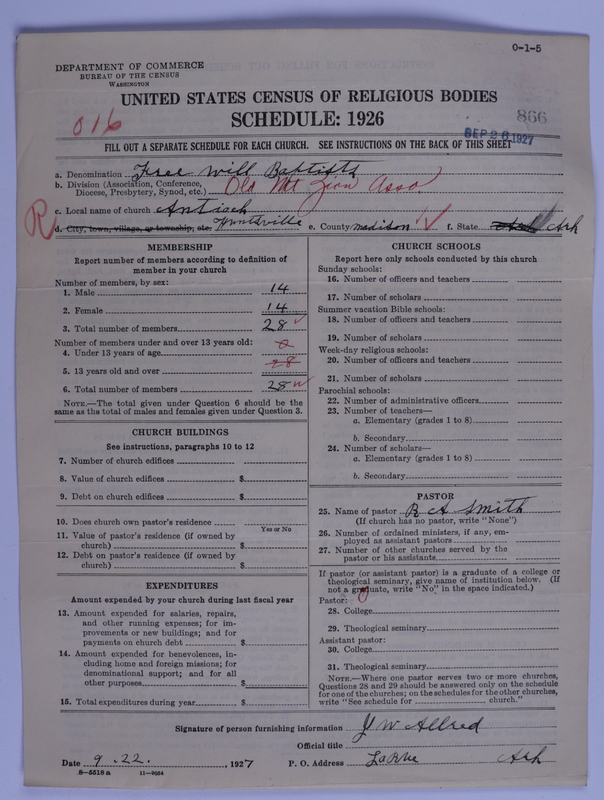 O-1-5
DEPARTMENT OF COMMERCE
BUREAU OF THE CENSUS
WASHINGTON
UNITED STATES CENSUS OF RELIGIOUS BODIES
SCHEDULE: 1926
016
866
SEP 26 1927
FILL OUT A SEPARATE SCHEDULE FOR EACH CHURCH. SEE INSTRUCTIONS ON THE BACK OF THIS SHEET
a. Denomination Free Will Baptists
b. Division (Association, Conference, Diocese, Presbytery, Synod, etc.) Old Mt Zion Asso.
c. Local name of church Antioch
R
d. City, town, village, or township, etc. Huntsville e. County Madison f. State Ark Ark
MEMBERSHIP
Report number of members according to definition of
member in your church
Number of members, by sex:
1. Male 14
2. Female 14
3. Total number of members 28
Number of members under and over 13 years old:
4. Under 13 years of age 0
5. 13 years old and over 28
6. Total number of members 28
NOTE.—The total given under Question 6 should be
same as the total of males and females given under Question 3.
CHURCH BUILDINGS
See instructions, paragraphs 10 to 12
7. Number of church edifices
8. Value of church edifices $
9. Debt on church edifices $
10. Does church own pastor's residence
Yes or No
11. Value of pastor's residence (if owned by
church) $
12. Debt on pastor's residence (if owned by
church) $
EXPENDITURES
Amount expended by your church during last fiscal year
13. Amount expended for salaries, repairs,
and other running expenses; for im-
provements or new buildings; and for
payments on church debt $
14. Amount expended for benevolences, in-
cluding home and foreign missions; for
denominational support; and for all
other purposes $
15. Total expenditures during year $
CHURCH SCHOOLS
Report here only schools conducted by this church
Sunday schools:
16. Number of officers and teachers
17. Number of scholars
Summer vacation Bible schools:
18. Number of officers and teachers
19. Number of scholars
Week-day religious schools:
20. Number of officers and teachers
21. Number of scholars
Parochial schools:
22. Number of administrative officers
23. Number of teachers—
a. Elementary (grades 1 to 8)
b. Secondary
24. Number of scholars—
a. Elementary (grades 1 to 8)
b. Secondary
PASTOR
25. Name of pastor R A Smith
(If church has no pastor, write "None")
26. Number of ordained ministers, if any, em-
ployed as assistant pastors
27. Number of other churches served by the
pastor or his assistants
If pastor (or assistant pastor) is a graduate of a college or
theological seminary, give name of institution below. (If
not a graduate, write "No" in the space indicated.)
Pastor:
28. College
29. Theological seminary
Assistant pastor:
30. College
31. Theological seminary
NOTE.—Where one pastor serves two or more churches,
Questions 28 and 29 should be answered only on the schedule
for one of the churches; on the schedules for the other churches,
write "See schedule for church."
Signature of person furnishing information J W Allred
Official title
Date 9.22., 1927 P. O. Address LaRue Ark
8—5518a 11—9054